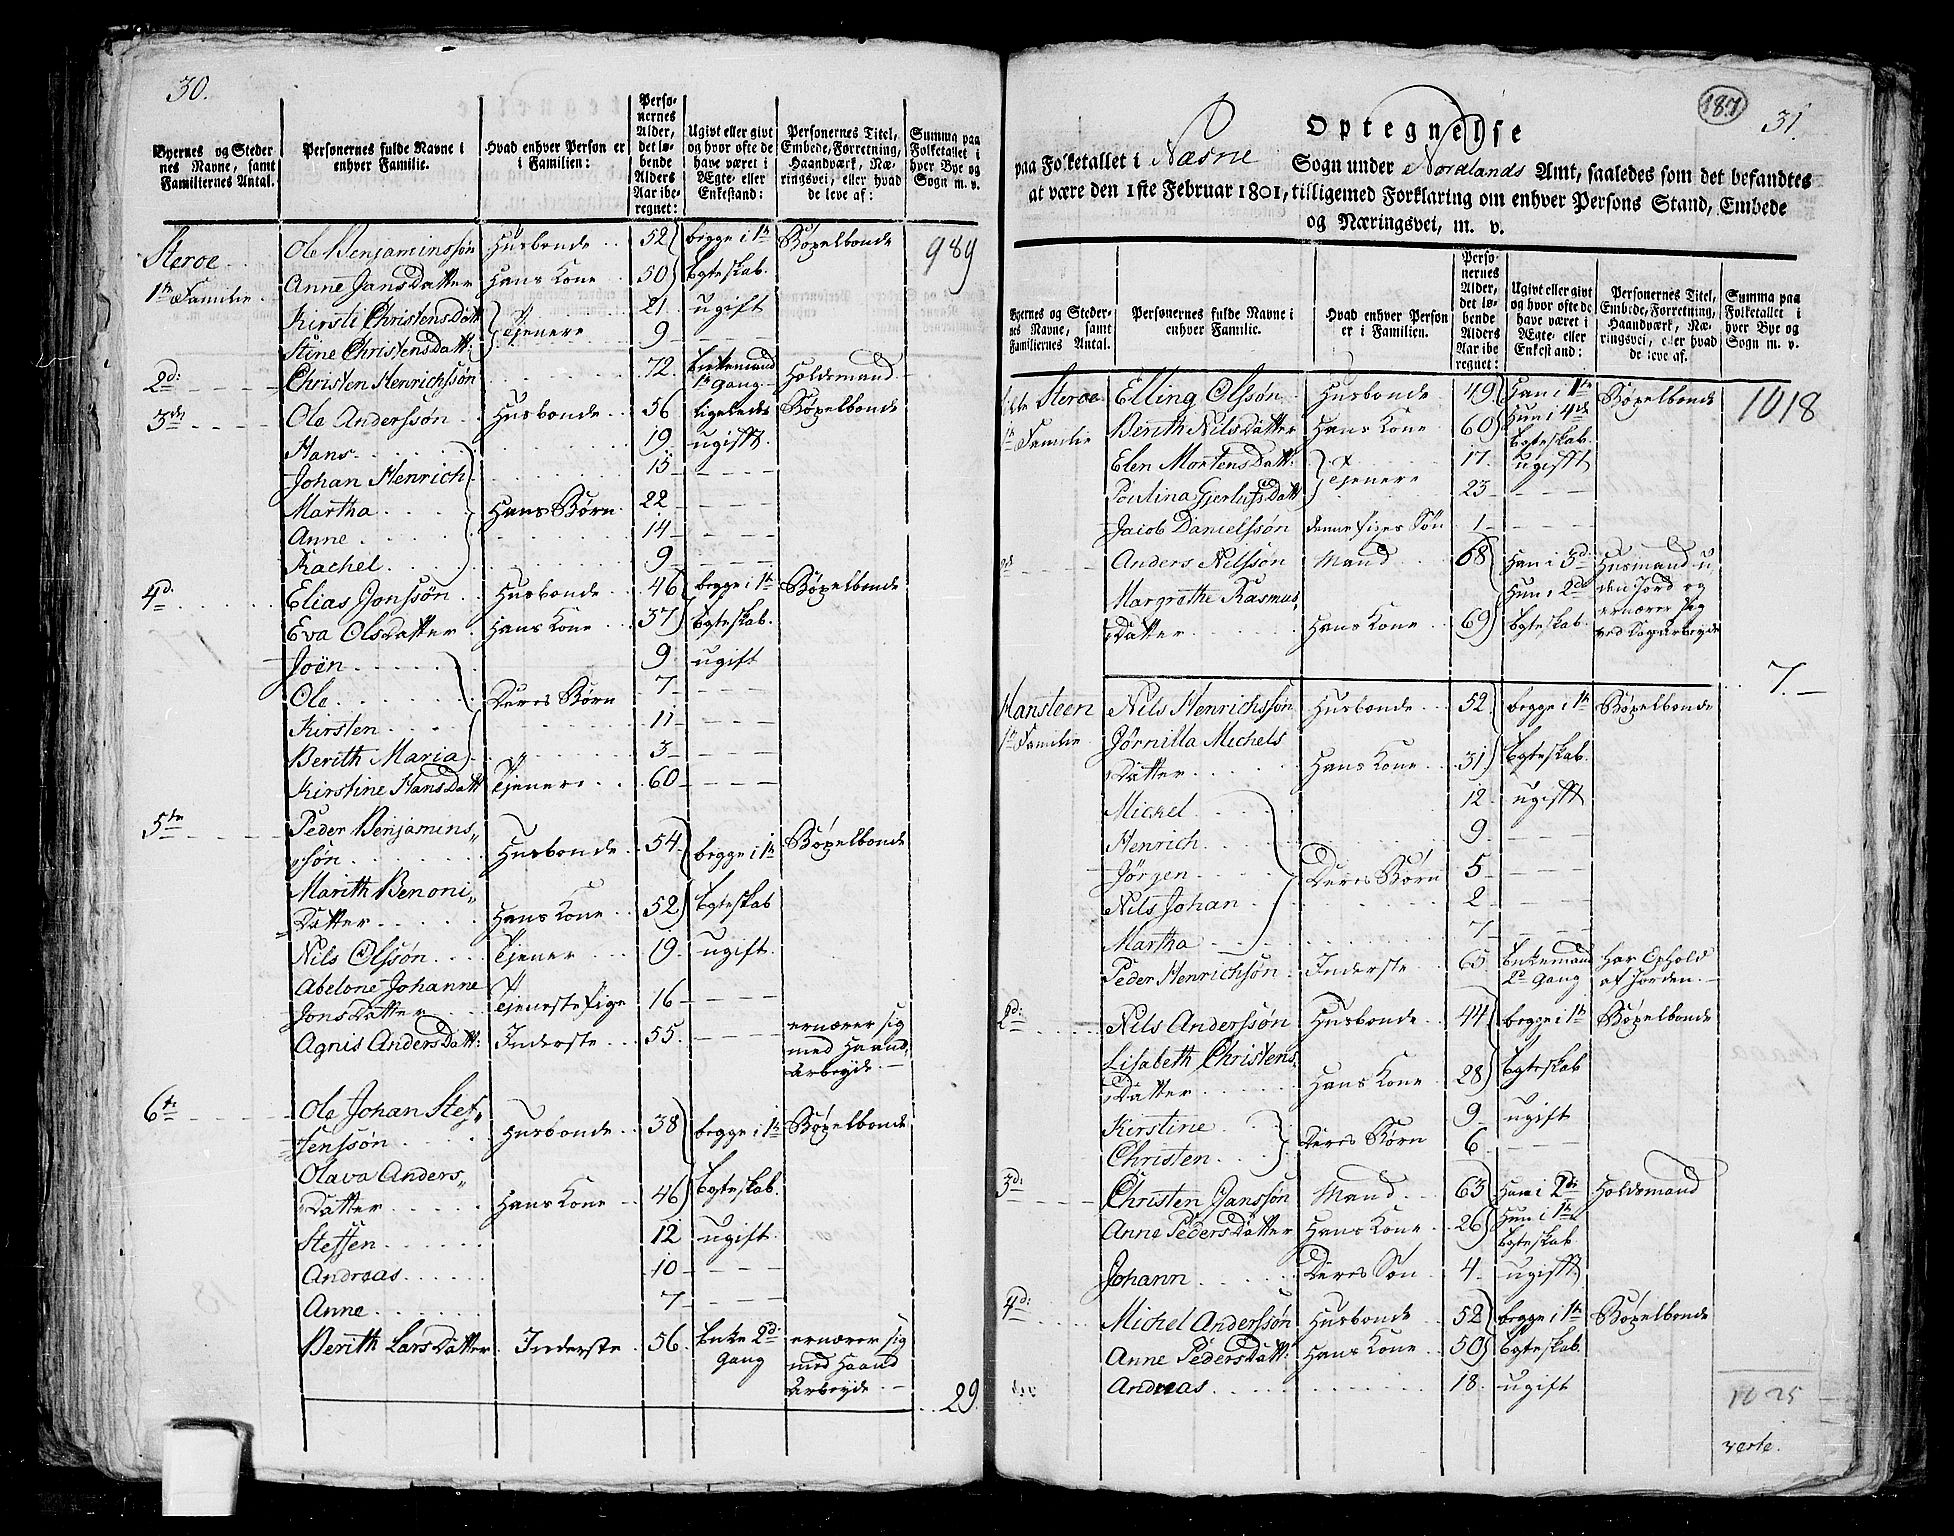 30.
Byernes og Steder nes Navne, samt Familiernes Antal. | Personernes fulde Navne i enhver Familie. | Hvad enhver Person er i Familien: | Perso-nernes Alder, det lø-bende Alders Aar ibe-regnet: | Ugivt eller givt og hvor ofte de have været i Ægte- eller Enkestand: | Personernes Titel, Embede, Forretning, Haandværk, Næ-ringsvei, eller hvad de leve af: | Summa paa Folketallet i hver Bye og Sogn m. v.
Steroe. Ole Benjaminssøn Husbonde 52 begge i 1te Bøxelbonde 989
1te Familie. Anne JansDatter Hans Kone 50 Egteskab.
Kirsti ChristensDatt: 21 ugift
Tjenere
Stine ChristensDatt: 9 -
2d: Christen Henrichssøn 72. Enkemand 1te Gang Holdsmand
3die Ole Anderssøn Husbonde 56 ligeledes Bøxelbonde
Hans 19 ugifft.
Johan Henrich 15 -
Martha Hans Børn 22 -
Anne 14 -
Rachel 9 -
4d. Elias Jonssøn Husbonde 46 begge i 1te Bøxelbonde
Eva OlsDatter Hans Kone 37 Egteskab.
Joen 9 ugift
Ole Deres Børn 7 -
Kirsten 11 -
Berith Maria 3 -
Kirstine HansDatt Tjener 60 -
5te Peder Benjamins-
søn Husbonde 54 begge i 1te Bøxelbonde
Marith Benoni-
Datter Hans Kone 52 Egteskab
Nils Olssøn Tjener 19. ugift.
Abelone Johanne
JonsDatter Tjeneste Pige 16 -
Agnis AndersDatt: Inderste 55. - ernærer sig
med Haand-
Arbeyde. -
6te Ole Johan Stef-
fenssøn Husbonde 38 begge i 1te Bøxelbonde
Olava Anders-
Datter Hans Kone 46 Egteskab.
Steffen 12 ugift.
Andreas 10 -
Anne 7 -
Berith LarsDatter Inderste 56. Enke 2d. ernærer sig
Gang med Haand
Arbeyde. -
29.
187
31.
Optegnelse
paa Folketallet i Næsne Sogn under Nordlands Amt, saaledes som det befandtes
at være den 1ste Februar 1801, tilligemed Forklaring om enhver Persons Stand, Embede
og Næringsvei, m. v.
Byernes og Steder-nes Navne, samt Familiernes Antal. | Personernes fulde Navne i enhver Familie. | Hvad enhver Person er i Familien. | Perso-nernes Alder, det lø-bende Alders Aar ibe-regnet: | Ugivt eller givt og hvor ofte de have været i Ægte- eller Enkestand: | Personernes Titel, Embede, Forretning, Haandværk, Næ-ringsvei, eller hvad de leve af. | Summa paa Folketallet i hver Bye og Sogn m. v.
Steroe Elling Olssøn Husbonde 49 Han i 1te Bøxelbonde 1018
1te Familie Berith NilsDatter Hans Kone 60 Hun i 4de
Egteskab.
Elen MortensDatt: 17. ugifft
Tjenere
23 -
Jacob Danielssøn denne Piges Søn 1 -
2d Anders Nilssøn Mand 68 Han i 3d Husmand u-
Margrethe Rasmus- Hun i 2d den Jord og
ernærer sig
Datter Hans Kone 69 Egteskab. ved Dagarbeyde
7. -
Hansteen Nils Henrichssøn Husbonde 52 begge i 1te Bøxelbonde
1te Familie Jørnilla Michels
Datter Hans Kone 31 Egteskab.
Michel 12 ugifft
Henrich 9 -
Jørgen Deres Børn 5 -
Nils Johan 2 -
Martha 7 -
Peder Henrichsøn Inderste 65 Enkemand har Ophold
2d Gang af Jorden. -
2d: Nils Anderssøn Husbonde 44 begge i 1te Bøxelbonde
Lisabeth Christens-
Datter Hans Kone 28 Egteskab
Kirstine 9 ugift
Deres Børn
Christen 6 -
3d: Christen Janssøn Mand 63 Han i 2d: Holdsmand
Anne PedersDatter Hans Kone 26 Hun i 1te
Egteskab
Johann Deres Søn 4. ugifft
4d: Michel Anderssøn Husbonde 52 begge i 1te Bøxelbonde
Anne PedersDatt: Hans Kone 50 Egteskab
Andreas 18. ugift
1025
verte.